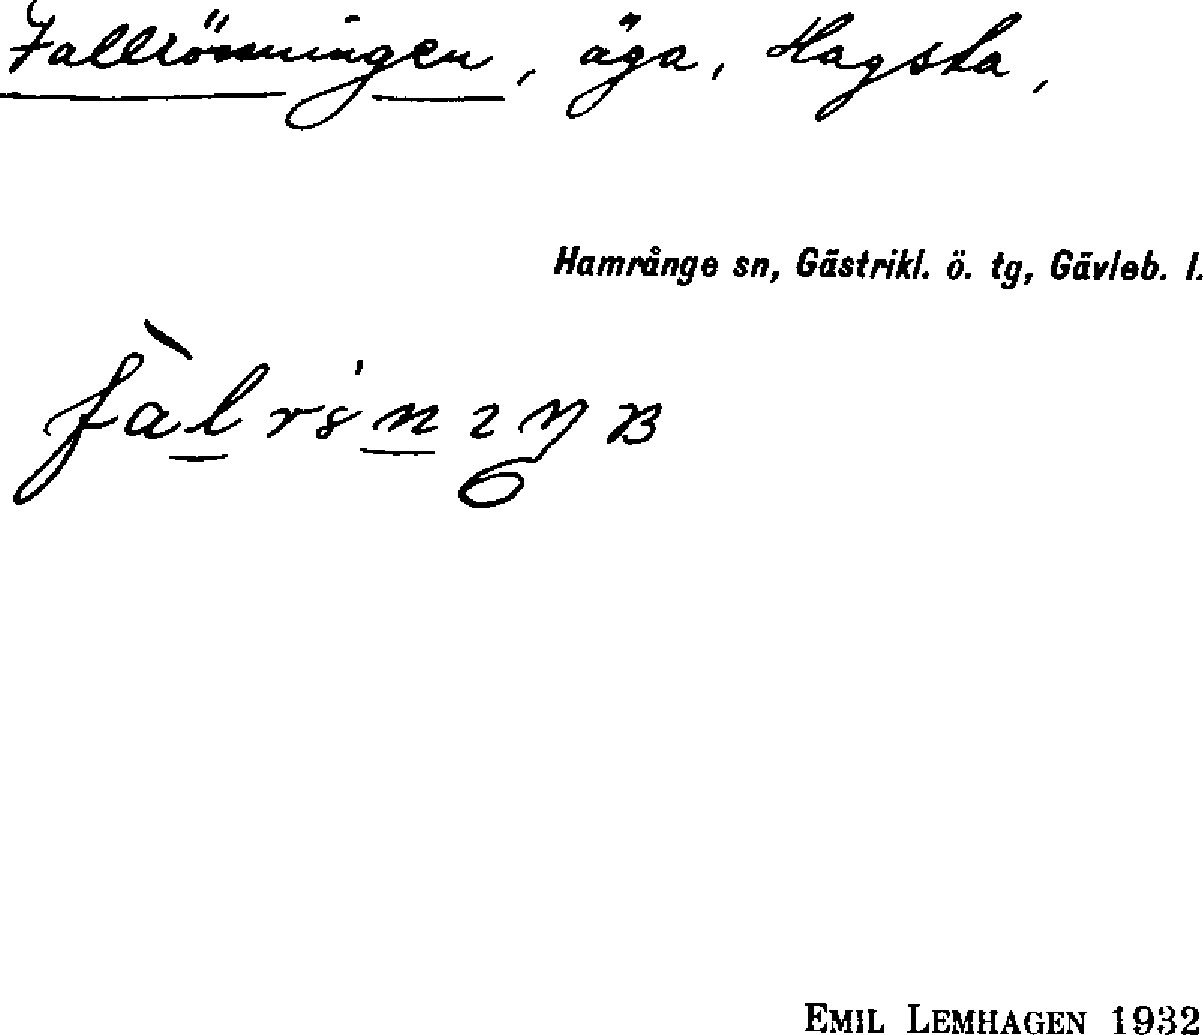 Fallrönningen, äga, Hagsta,
Hamrånge sn, Gästrikl. ö. tg, Gävleb. l.
EMIL LEMHAGEN 1932